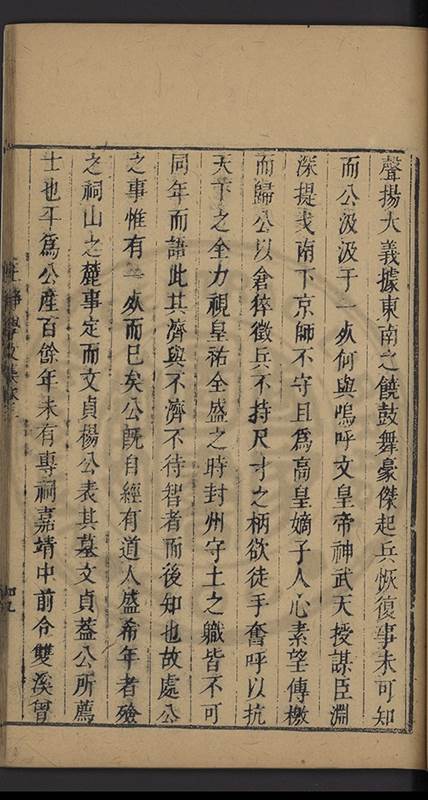 聲揚大義據東南之饒鼓舞豪傑起兵恢復事未可知
而公汲汲于一死何與嗚呼文皇帝神武天授謀臣淵
深提戈南下京師不守且為高皇嫡子人心素望傳檄
而歸公以倉猝徵兵不持尺寸之柄欲徒手奮呼以抗
天下之全力視皇祐全盛之時封州守土之職皆不可
同年而語此其濟與不濟不待智者而後知也故處公
之事惟有一死而已矣公旣自經有道人盛希年者殮
之祠山之麓事定而文貞楊公表其墓文貞葢公所薦
士也平為公產百餘年未有專祠嘉靖中前令雙溪曾